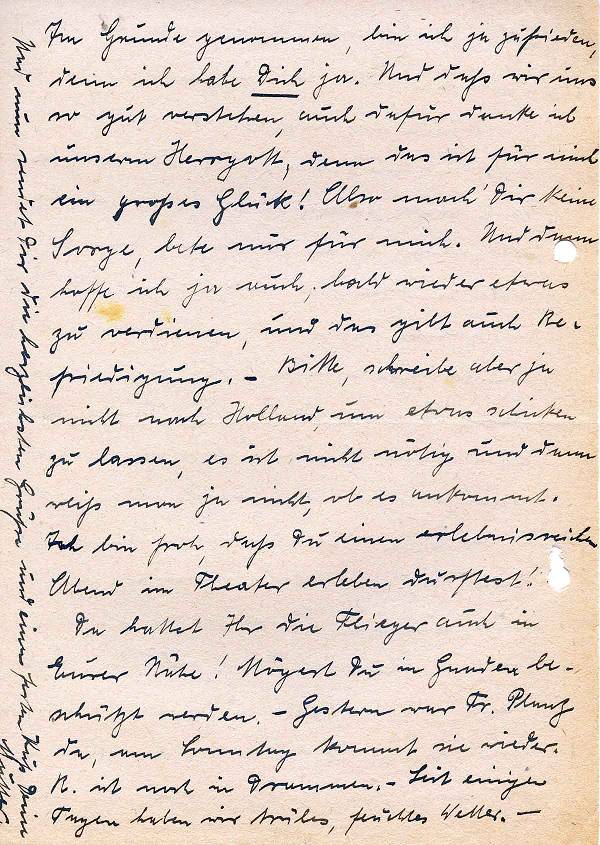 Im Grunde genommen, bin ich ja zufrieden,
denn ich habe Dich ja. Und daß wir uns
so gut verstehen, auch dafür danke ich
unserm Herrgott, denn das ist für mich
ein großes Glück! Also mach' Dir keine
Sorge, bete nur für mich. Und dann
hoffe ich ja auch, bald wieder etwas
zu verdienen, und das gibt auch Be-
friedigung. – Bitte, schreibe aber ja
nicht nach Holland, um etwas schicken
zu lassen, es ist nicht nötig und dann
weiß man ja nicht, ob es ankommt.
Ich bin froh, daß Du einen erlebnisreichen
Abend im Theater erleben durftest!
Da hattet Ihr die Flieger auch in
Eurer Nähe! Mögest Du in Gnaden be-
schützt werden. – Gestern war Fr.
da, am Sonntag kommt sie wieder.
R. ist noch in Drammen. – Seit einigen
Tagen haben wir trübes, feuchtes Wetter. –
Und nun sendet Dir die herzlichsten Grüße und einen festen Kuß Deine
Mutter.